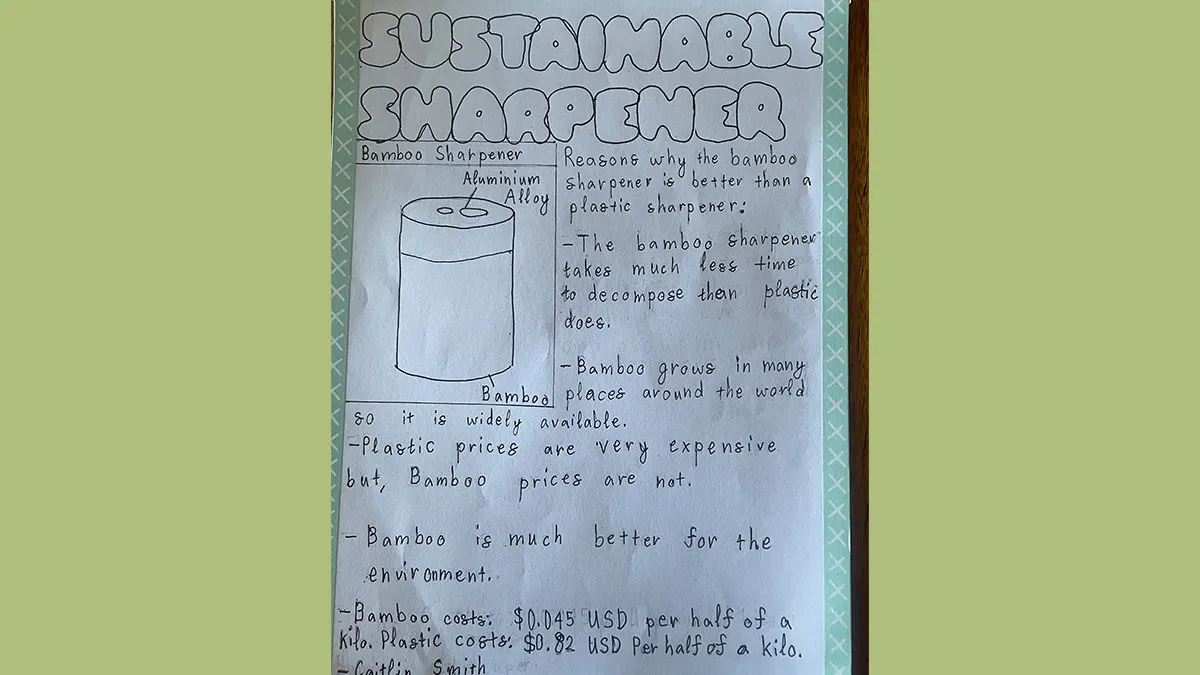 SUSTAINABLE
SHARPENER
Bamboo Sharpener
Aluminium
Alloy
Bamboo
Reasons why the bamboo
sharpener is better than a
plastic sharpener:
-The bamboo sharpener
takes much less time
to decompose than plastic
does.
-Bamboo grows in many
places around the world
so it is widely available.
-Plastic prices are very expensive
but, Bamboo prices are not.
- Bamboo is much better for the
environment.
-Bamboo costs: $0.045 USD per half of a
kilo. Plastic costs: $0.82 USD Per half of a kilo.
- Caitlin Smith